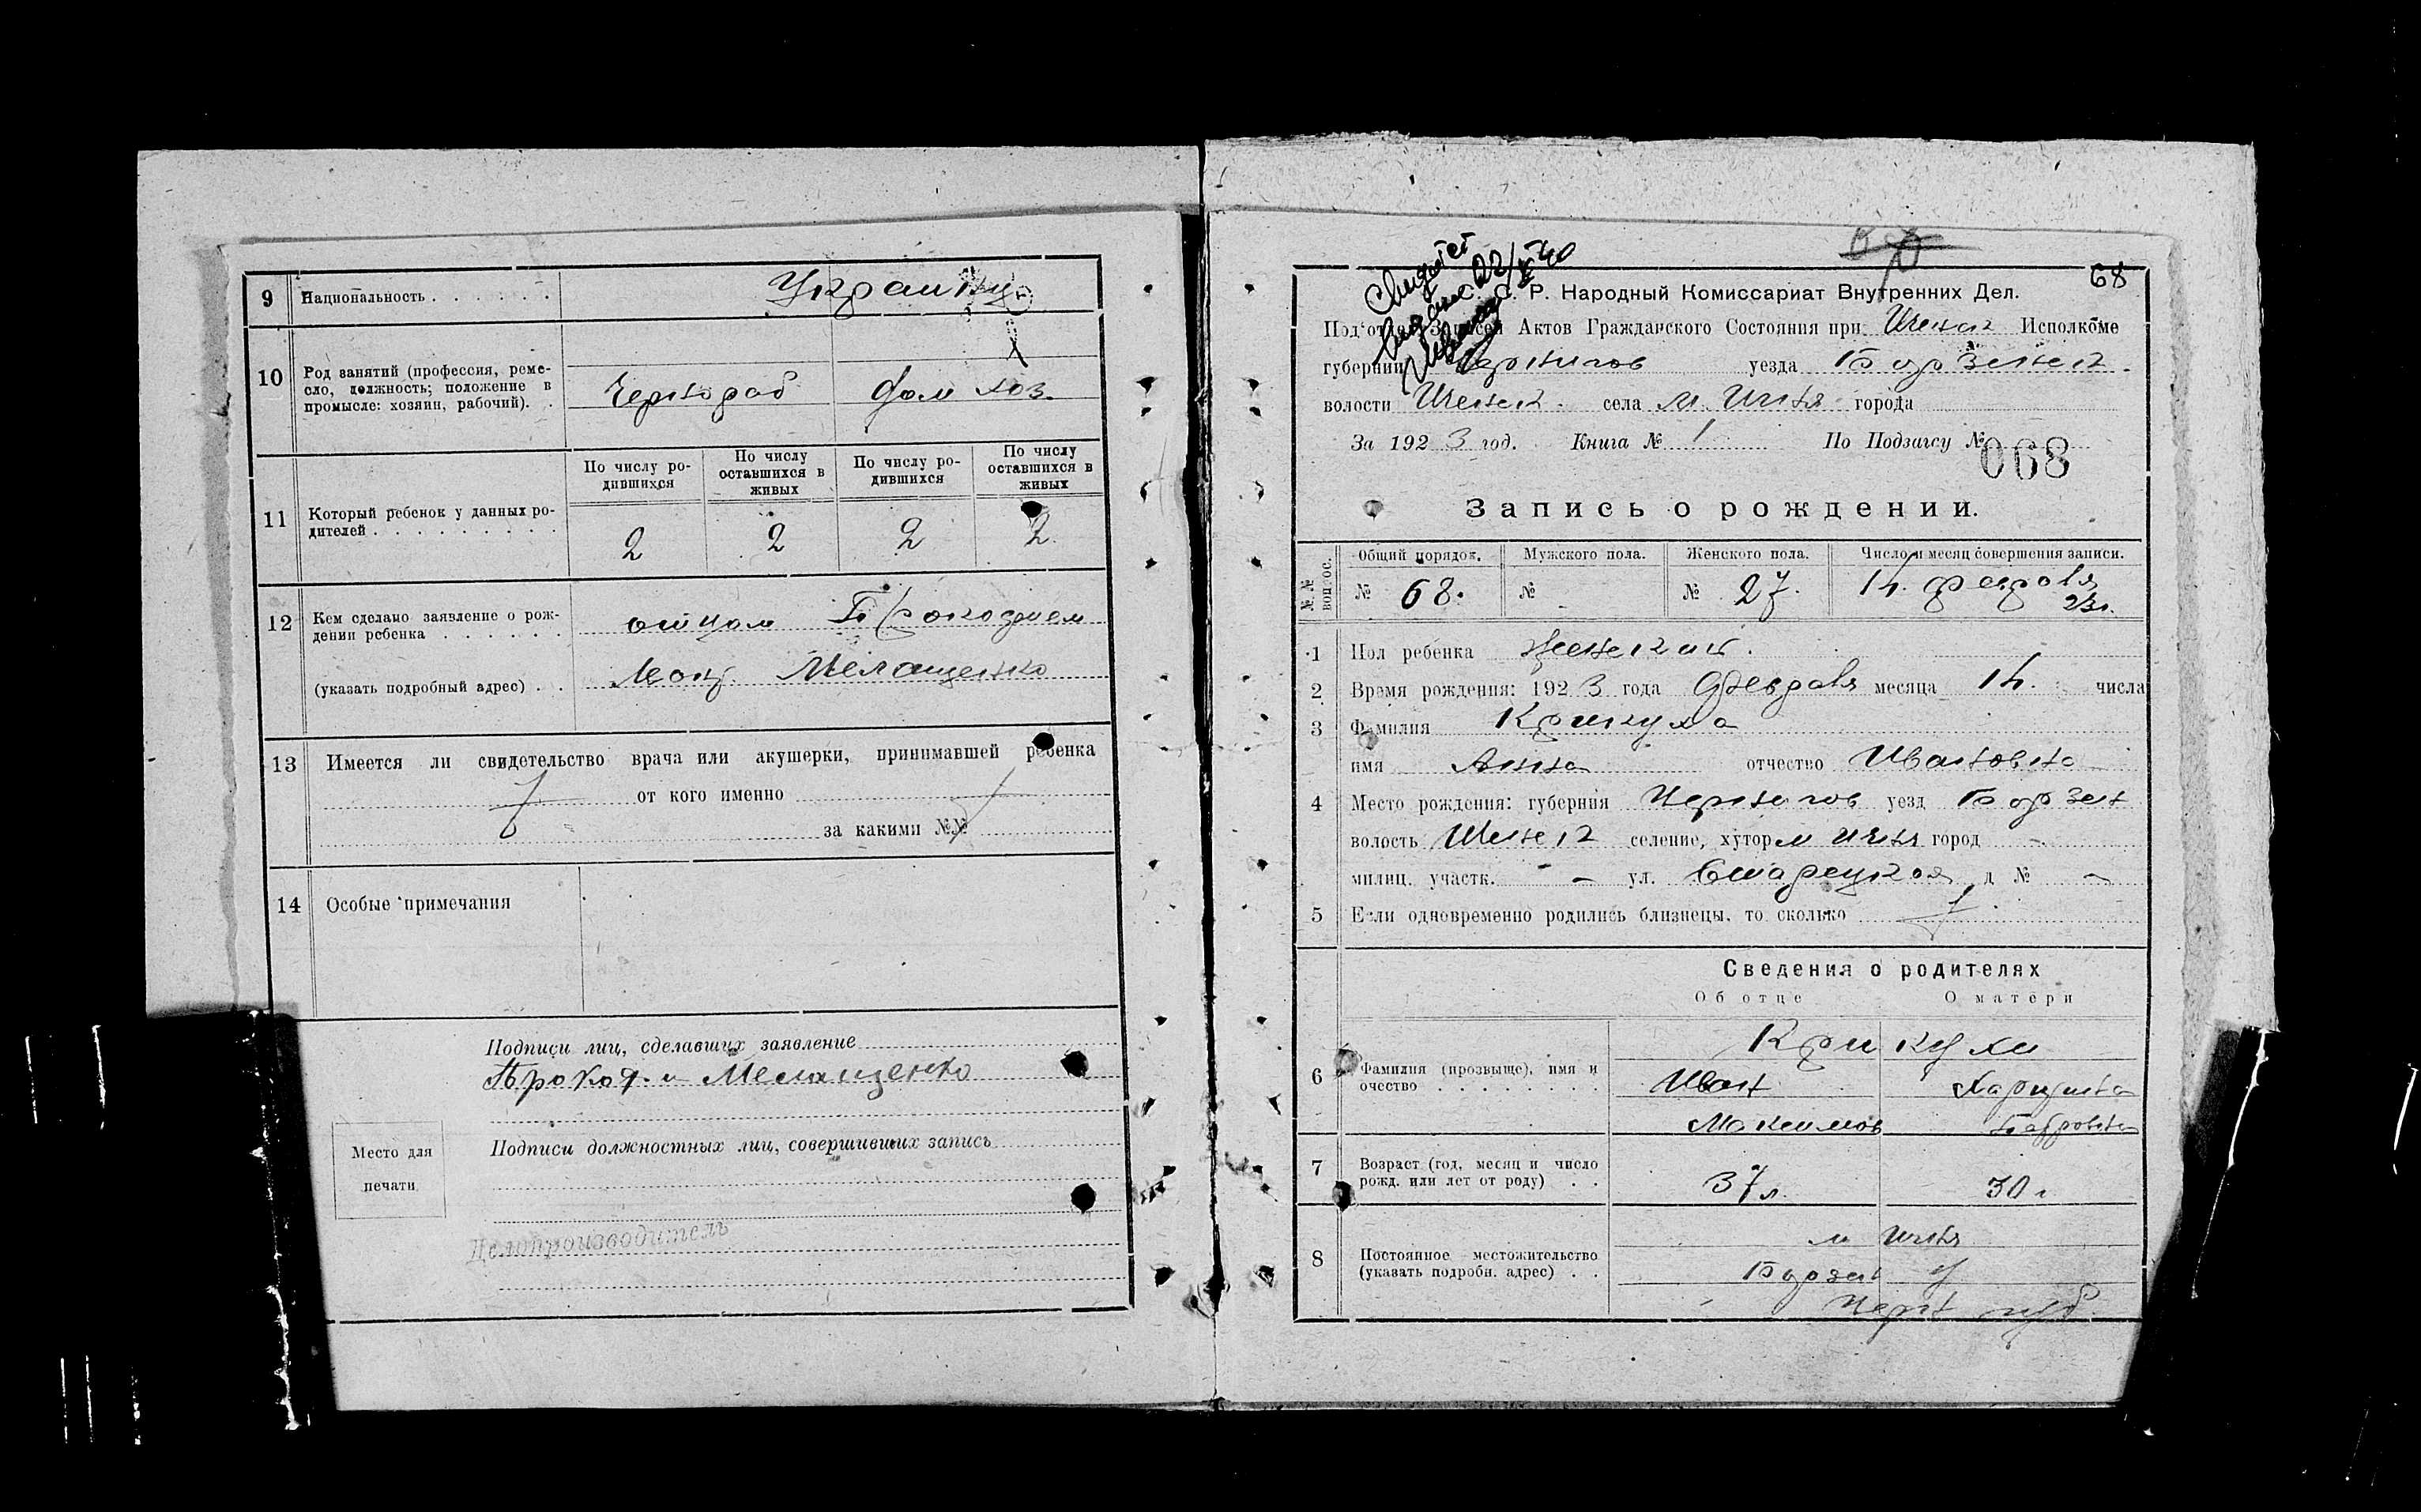 9 Национальность
Украинцы
10 Род занятий (профессия, реме-
сло, должность; положение в
промысле: хозяин, рабочий).
Чернораб дом хоз.
11 Который ребенок у данных ро-
дителей
По числу ро-
дившихся
По числу
оставшихся в
живых
По числу ро-
дившихся
По числу
оставшихся в
живых
2 2 2 2
12 Кем сделано заявление о рож-
дении ребенка
отцом Прокофием
(указать подробный адрес)
Мелащенко
13 Имеется ли свидетельство врача или акушерки, принимавшей ребенка
от кого именно
за какими №№
14 Особые примечания
Подписи лиц, сделавших заявление
Мелащенко
Подписи должностных лиц, совершивших запись
Место для
печати
Делопроизводитель
68
С. Р. Народный Комиссариат Внутренних Дел.
Под'отдел Записей Актов Гражданского Состояния при Иченск Исполкоме
губернии Чернигов уезда Борзенск.
волости Иченск. села м. Ичня города
За 1923 год. Книга № 1 По Подзагсу №
068
Запись о рождении.
№№ вопрос.
Общий порядок. Мужского пола. Женского пола. Число и месяц совершения записи.
№ 68. № - № 27. 14. февраля
23г.
1 Пол ребенка женский.
2 Время рождения: 1923 года февраля месяца 14. числа
3 Фамилия Крикуха
имя Анна отчество Ивановна
4 Место рождения: губерния Чернигов уезд Борзен
волость Иченск селение, хутор м Ичня город -
милиц. участк. - ул. д № -
5 Если одновременно родились близнецы, то сколько
Сведения о родителях
Об отце О матери
6 Фамилия (прозвыще), имя и
очество
Крикухи
Иван Харитина
Максимов
7 Возраст (год, месяц и число
рожд. или лет от роду)
37 л. 30 г
8 Постоянное местожительство
(указать подробн. адрес)
м Ичня
Борзен у
Черн губ.